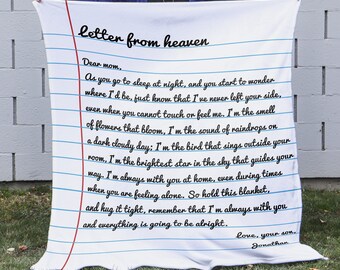 letter from heaven
Dear mom,
As you go to sleep at night, and you start to wonder
where I'd be, just know that I've never left your side,
even when you cannot touch or feel me. I'm the smell
of flowers that bloom, I'm the sound of raindrops on
a dark cloudy day; I'm the bird that sings outside your
room, I'm the brightest star in the sky that guides your
way. I'm always with you at home, even during times
when you are feeling alone. So hold this blanket,
and hug it tight, remember that I'm always with you
and everything is going to be alright.
Love, your son,
Jonathan